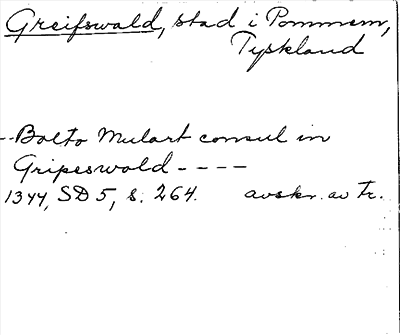 Greifswald, stad i Pommern,
Tyskland
--Bolto Mulart consul in
Gripeswold ----
1344, SD 5, s. 264. avskr. av Fr.